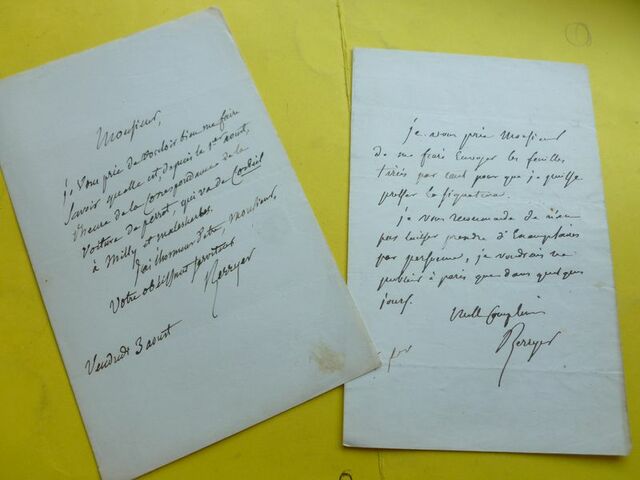 Monsieur,
je vous prie de vouloir bien me faire
savoir quelle est, depuis le 1er aout,
l'heure de la correspondance de la
voiture de perrot, qui va de Corbeil
à Milly et malesherbes.
J'ai l'honneur d'etre, Monsieur,
Votre obéissant serviteur
Berryer
Vendredi 3 aout
je vous prie Monsieur
de me faire Envoyer les feuilles
tirées par cent pour que je puisse
presser la signature.
je vous recommande de n'en
pas laisser prendre d'Exemplaires
par personne, je voudrais ne
publier à paris que dans quelques
jours.
Mille Complimens
Berryer